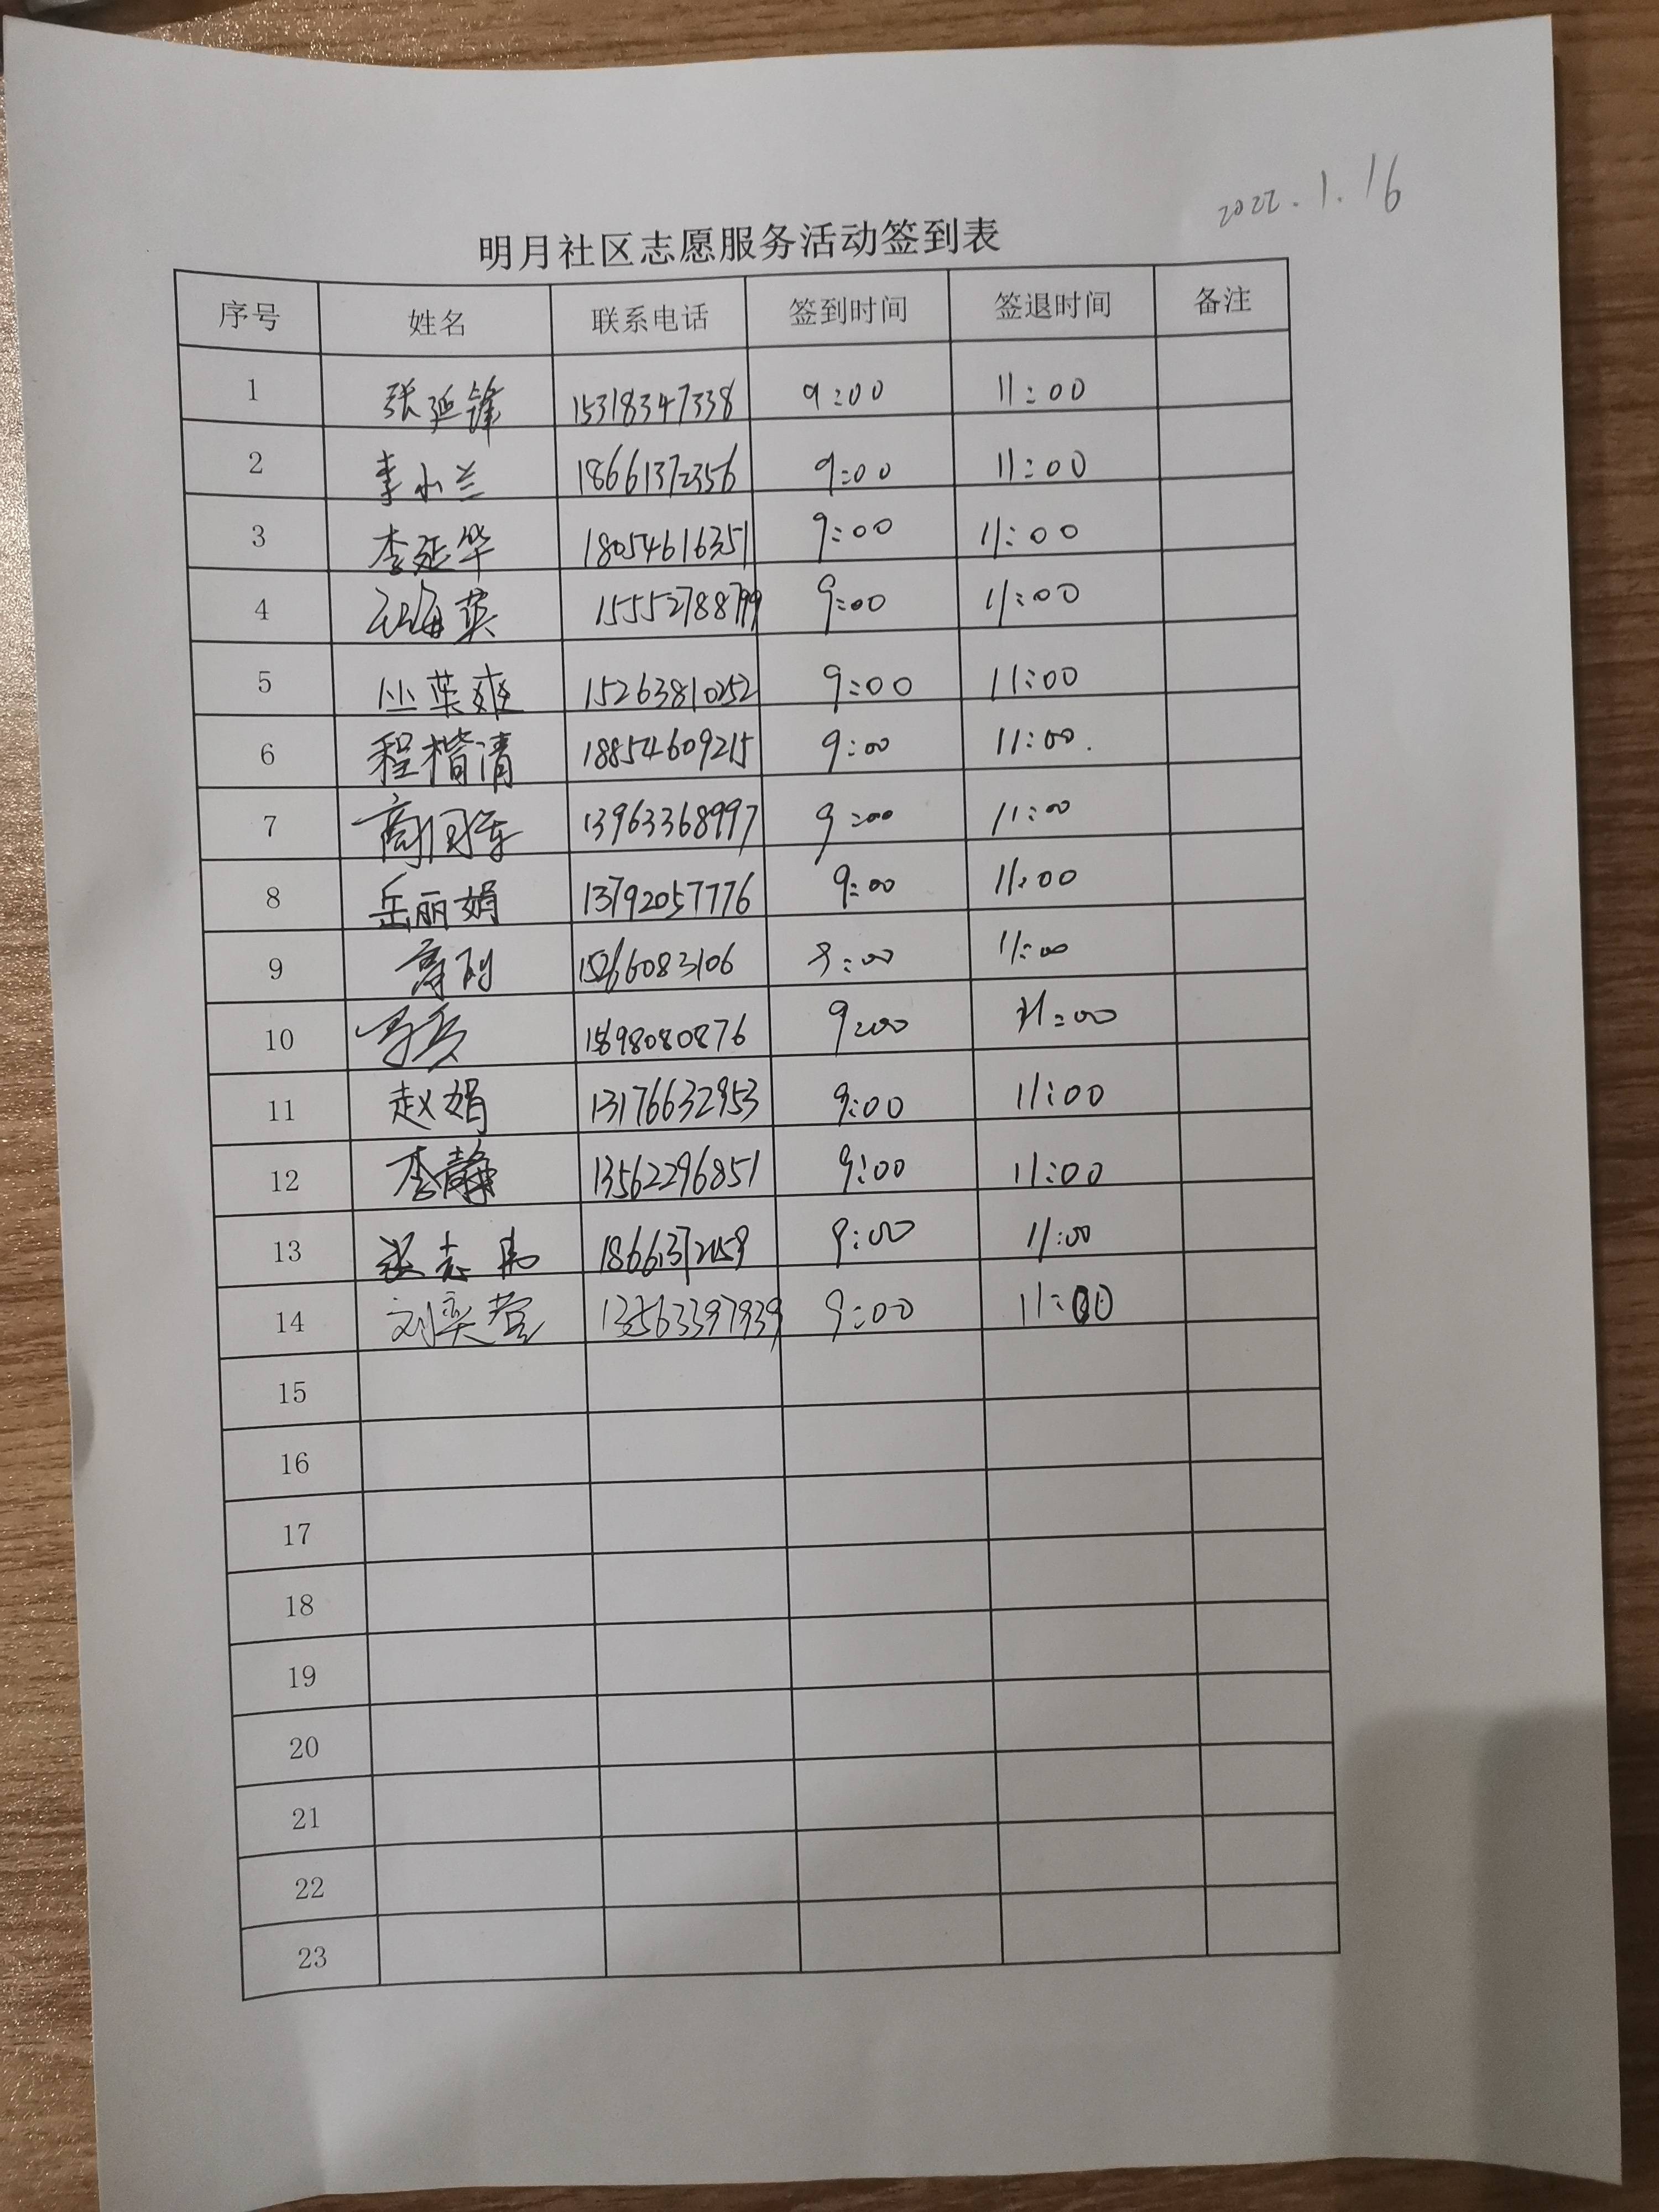 2022.1.16
明月社区志愿服务活动签到表
序号 姓名 联系电话 签到时间 签退时间 备注
1 张延锋 15318347338 9:00 11:00
2 李小兰 18661372356 9:00 11:00
3 李延华 18054616351 9:00 11:00
4 海英 15552788799 9:00 11:00
5 丛英爽 15263810252 9:00 11:00
6 程楷清 18854609215 9:00 11:00.
7 商国军 13963368997 9:00 11:00
8 岳丽娟 13792057776 9:00 11:00
9 15266083106 9:00 11:00
10 9:00 11:00
11 赵娟 13176632953 9:00 11:00
12 李静 13562296851 9:00 11:00
13 张志 9:00 11:00
14 刘奕萱 13563397939 9:00 11:00
15
16
17
18
19
20
21
22
23